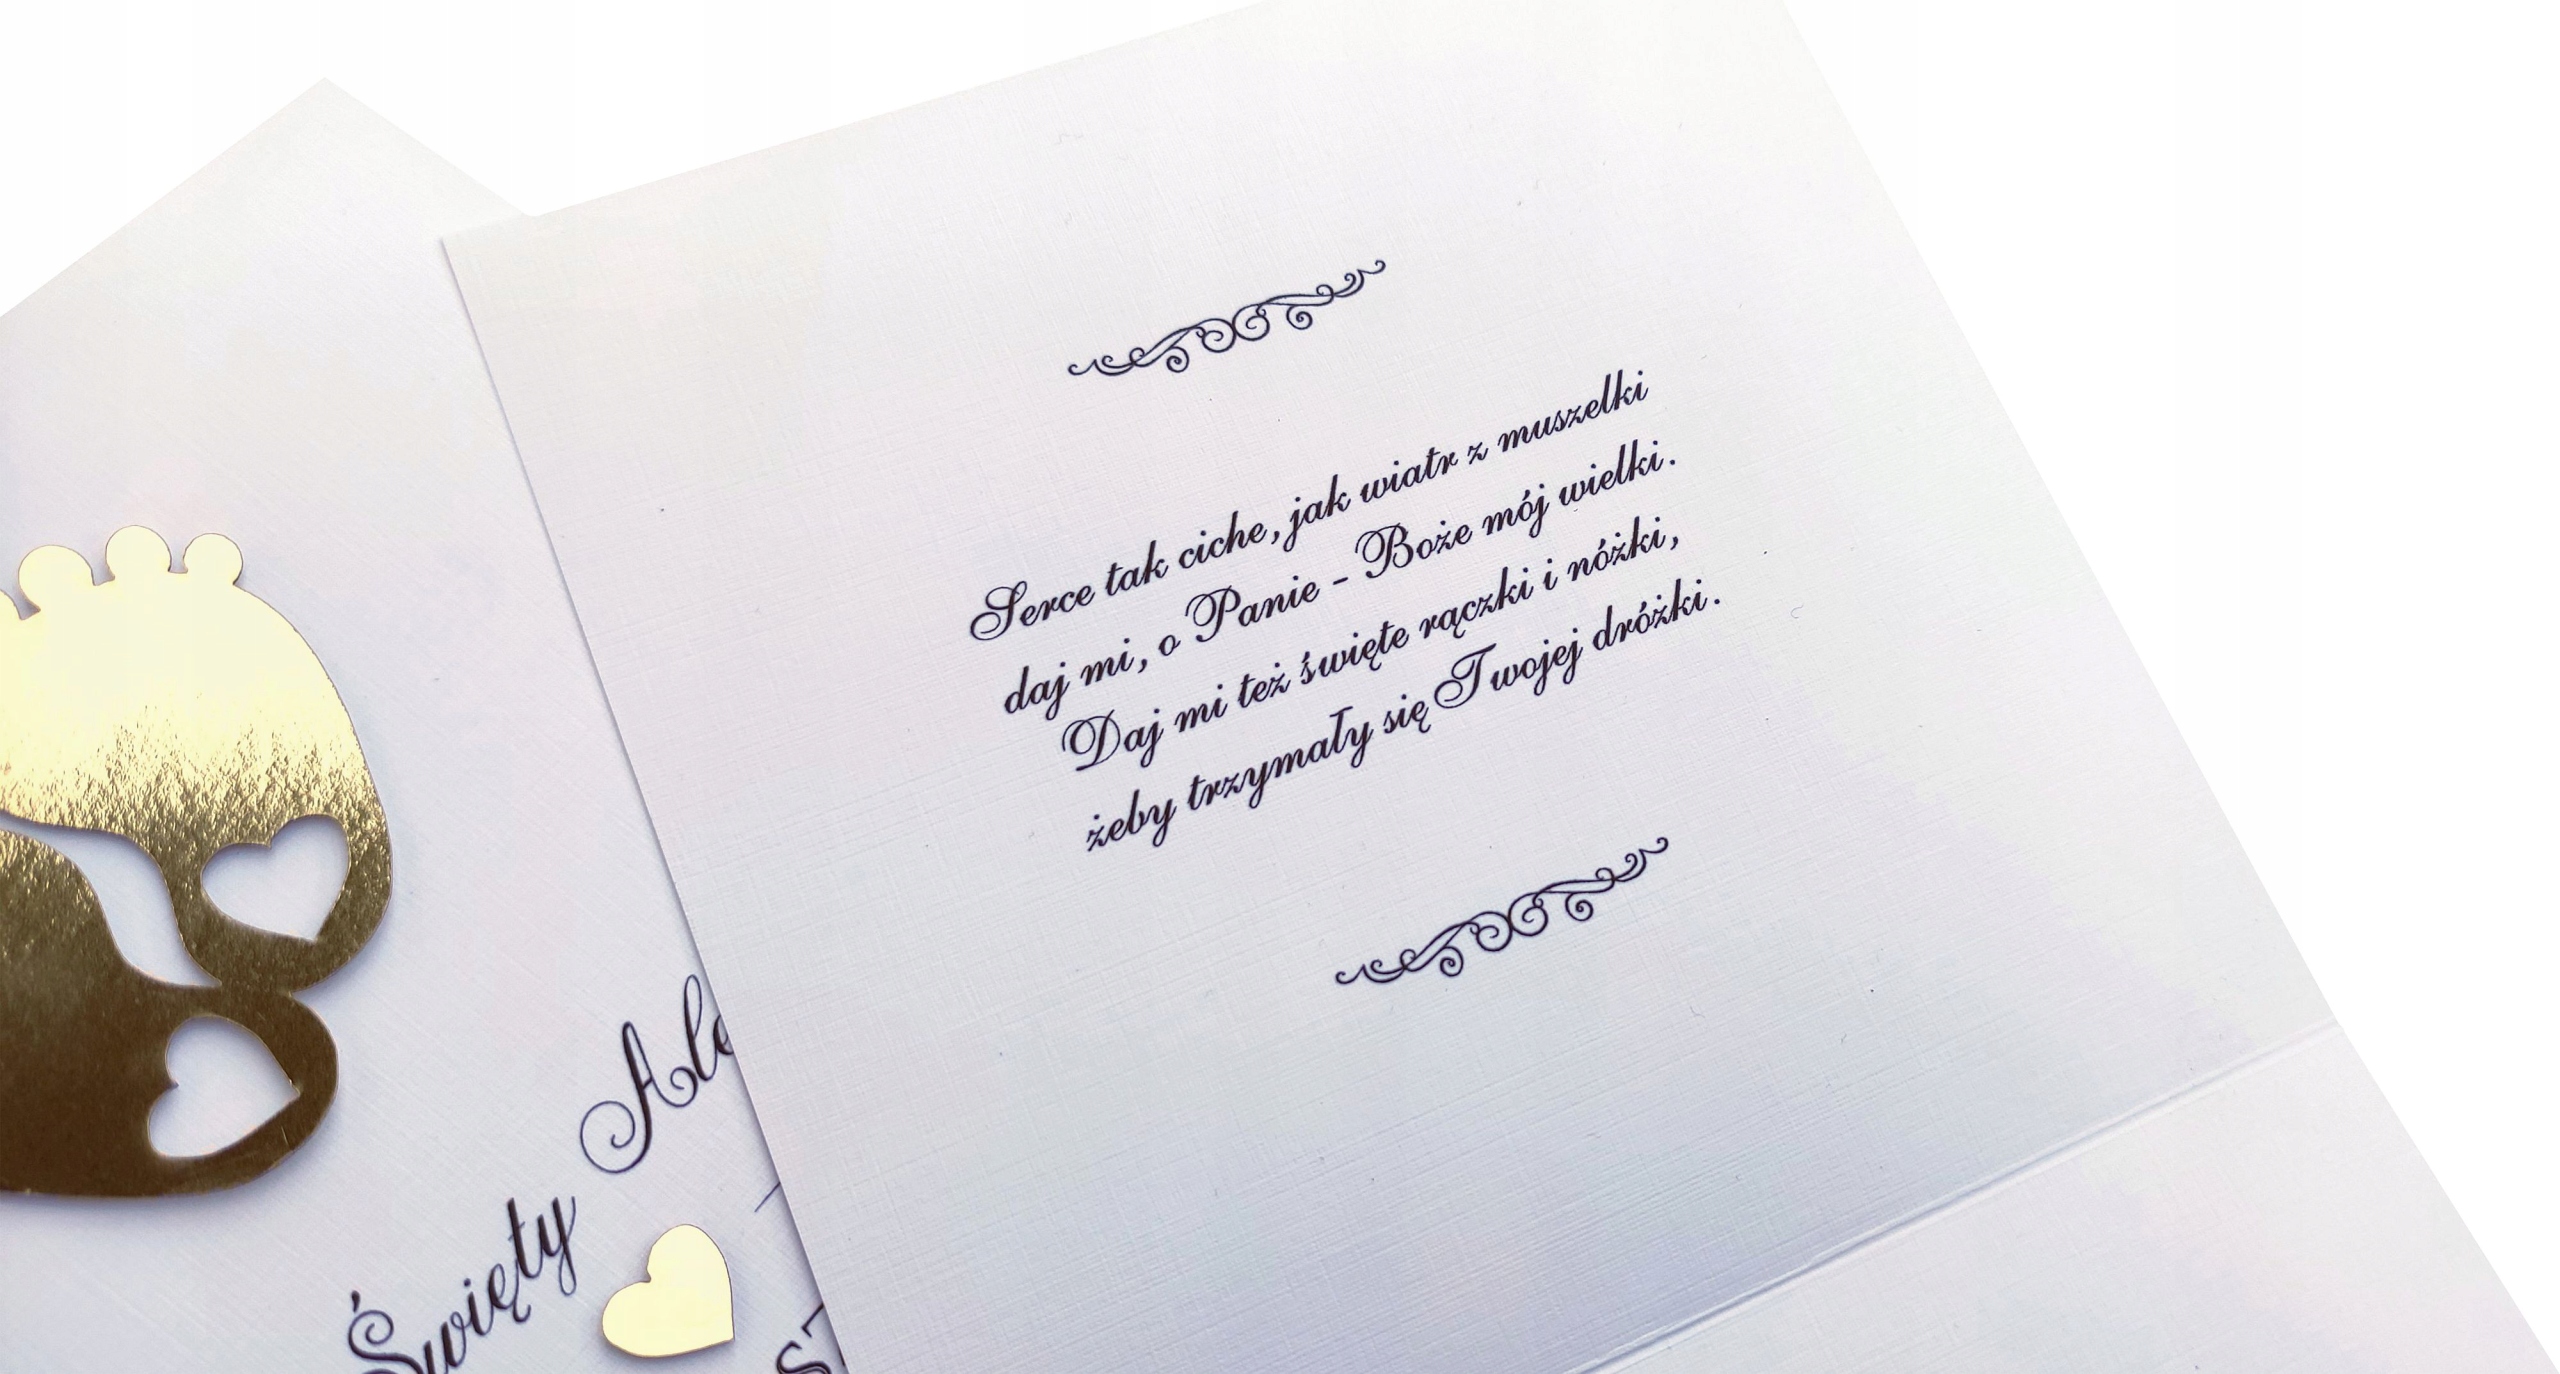 Serce tak ciche, jak wiatr z muszelki
daj mi, o Panie - Boże mój wielki.
Daj mi też święte rączki i nóżki,
żeby trzymały się Twojej dróżki.
Święty